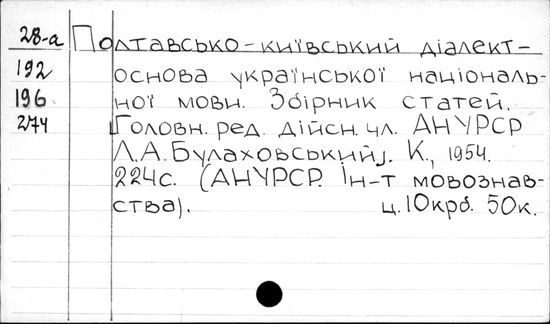 28-а Полтавсько-київський діалект-
192 основа української національ-
196 ної мови. Збірник статей.
274 Головн. ред. дійсн. чл. АНУРСР
Л.А. Булаховський. К., 1954.
224с. (АНУРСР. Ін-т мовознав-
ства). ц. 10крб. 50к.